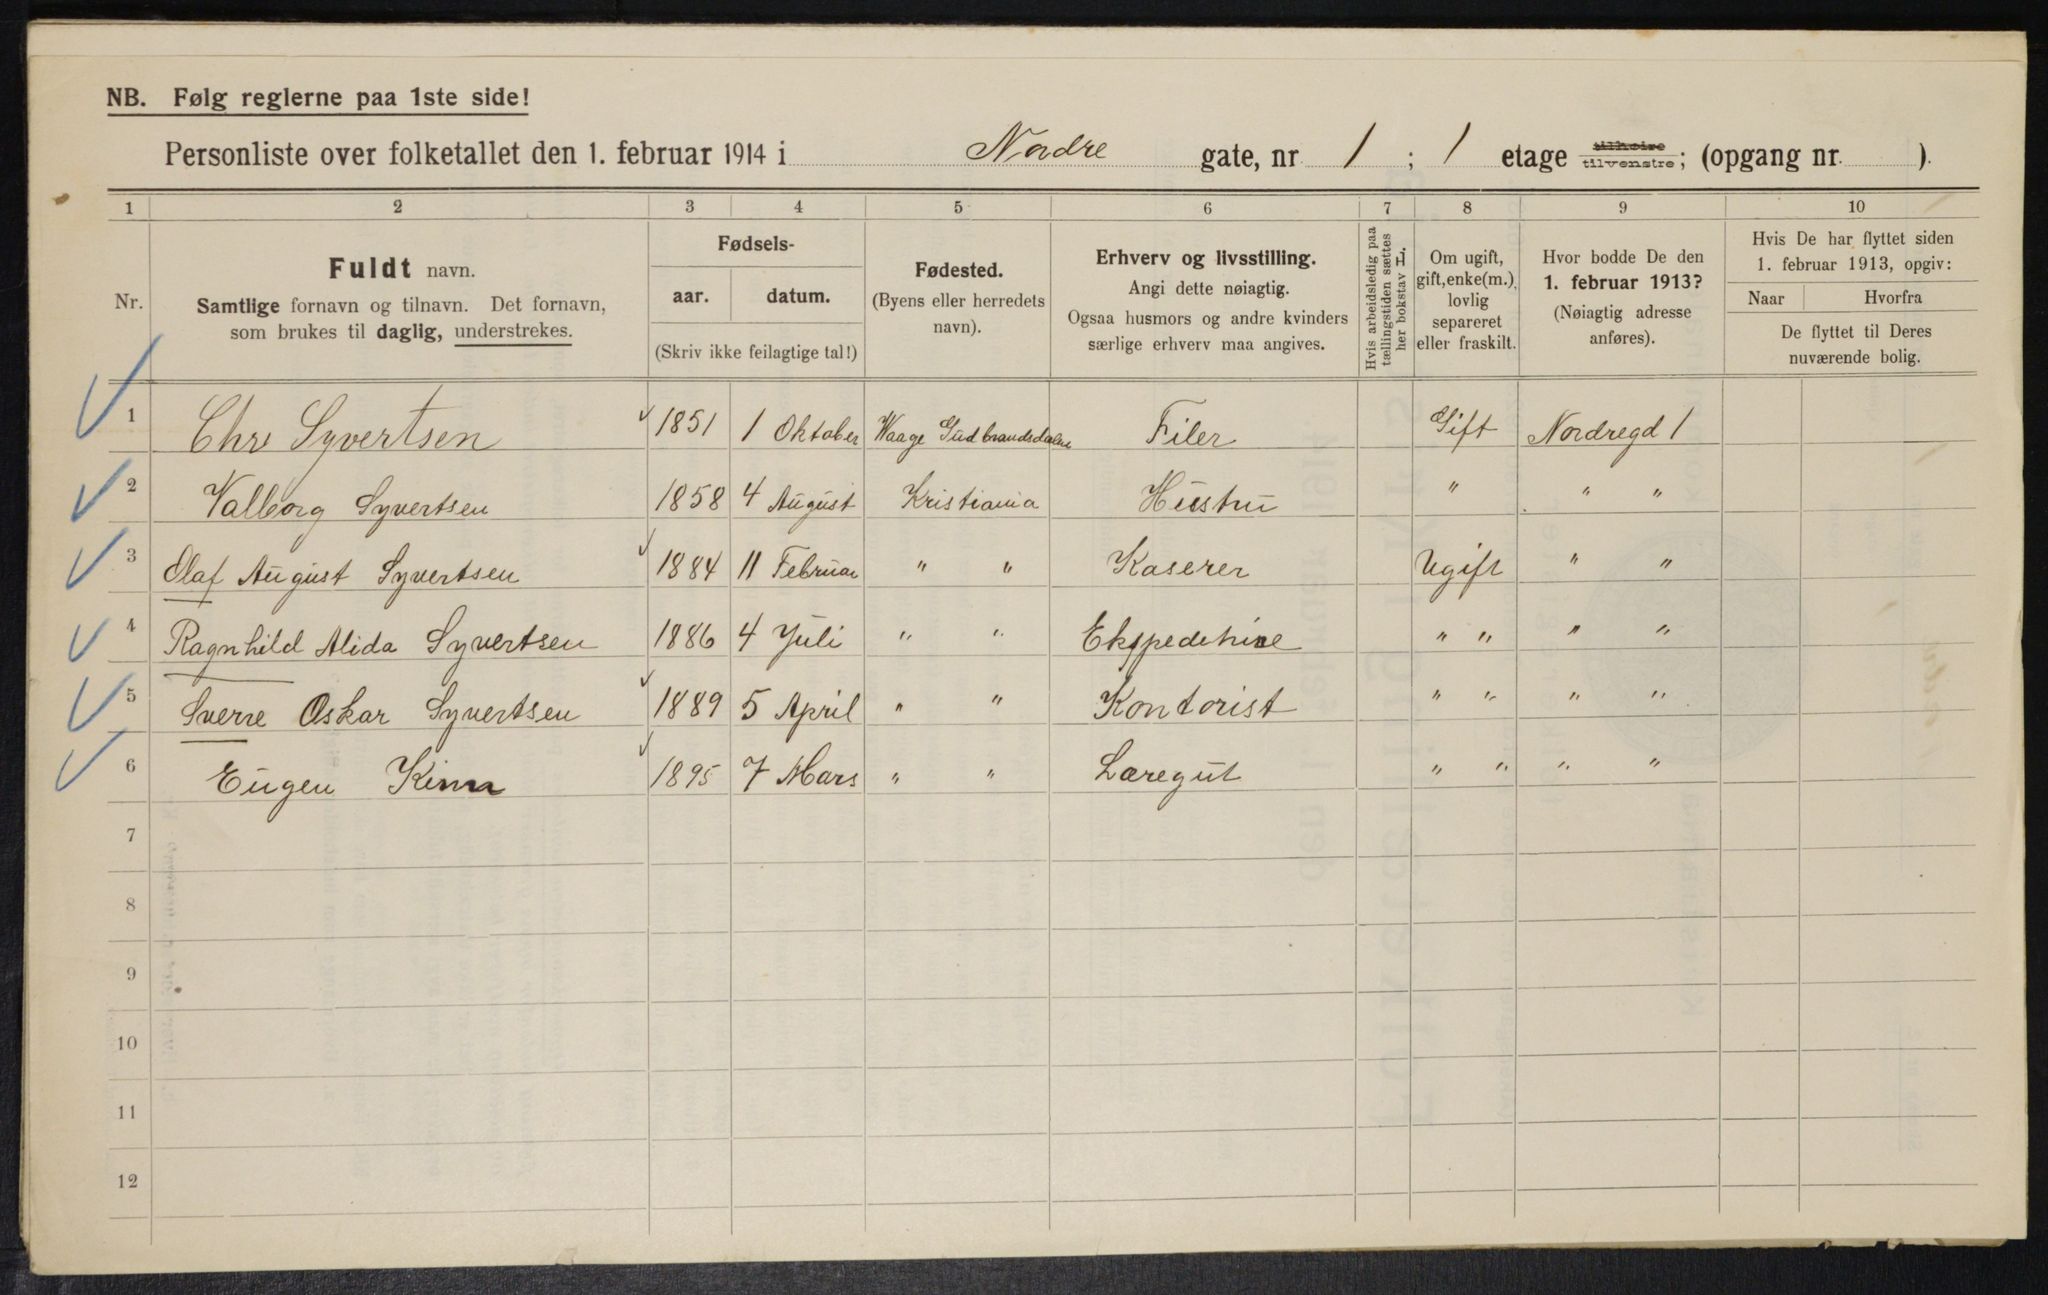 NB. Følg reglerne paa 1ste side!
Personliste over folketallet den 1. februar 1914 i Nordre gate, nr 1 ; 1 etage tilhøire tilvenstre; (opgang nr. ).
1 2 3 4 5 6 7 8 9 10
Nr.
Fuldt navn.
Samtlige fornavn og tilnavn. Det fornavn,
som brukes til daglig, understrekes.
Fødsels-
aar. datum.
(Skriv ikke feilagtige tal!)
Fødested.
(Byens eller herredets
navn).
Erhverv og livsstilling.
Angi dette nøiagtig.
Ogsaa husmors og andre kvinders
særlige erhverv maa angives.
Hvis arbeidsledig paa
tællingstiden sættes
her bokstav L.
Om ugift,
gift, enke(m.),
lovlig
separeret
eller fraskilt.
Hvor bodde De den
1. februar 1913?
(Nøiagtig adresse
anføres).
Hvis De har flyttet siden
1. februar 1913, opgiv:
Naar Hvorfra
De flyttet til Deres
nuværende bolig.
1 Chr Syvertsen 1851 1 Oktober Waage Gudbrandsdalen Filer Gift Nordregd 1
2 Valborg Syvertsen 1858 4 August Kristiania Hustru " " "
3 Olaf August Syvertsen 1884 11 Februar " " Kaserer Ugift " "
4 Ragnhild Alida Syvertsen 1886 4 Juli " " " " " "
5 Sverre Oskar Syvertsen 1889 5 April " " Kontorist " " " "
6 Eugen 1895 7 Mars " " Læregut " " " "
7
8
9
10
11
12